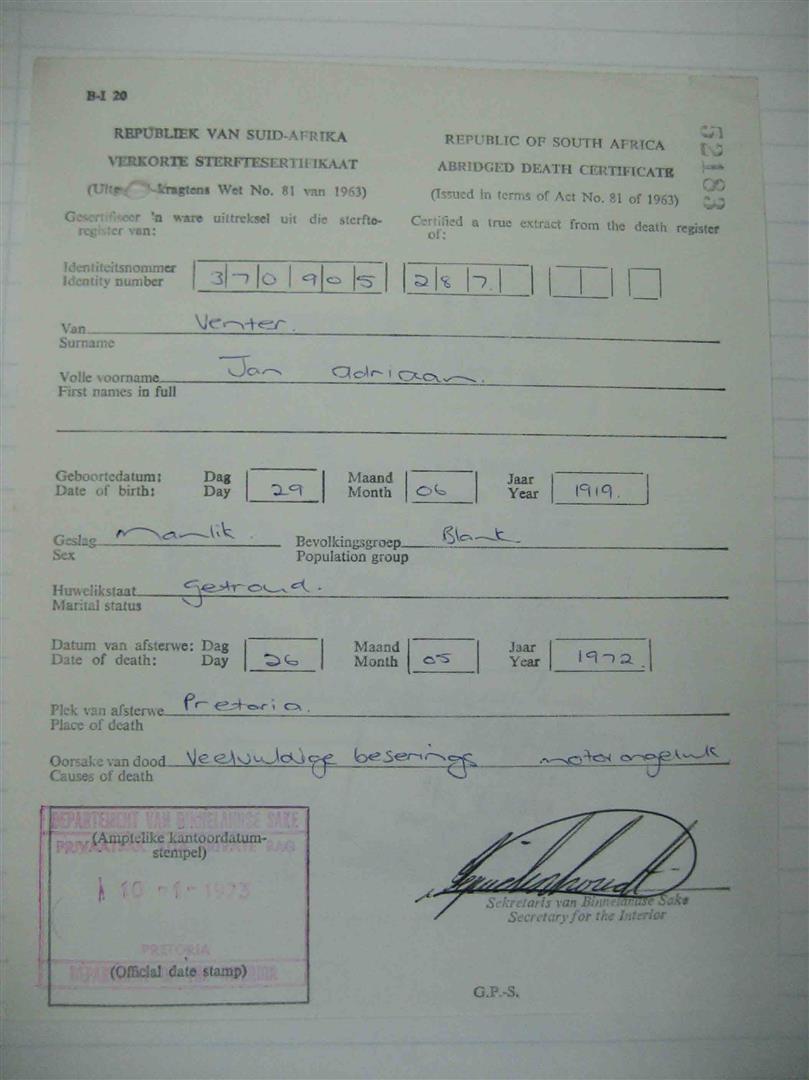 B-I 20
52183
REPUBLIEK VAN SUID-AFRIKA
VERKORTE STERFTESERTIFIKAAT
(Uitge kragtens Wet No. 81 van 1963)
Gesertifiseer 'n ware uittreksel uit die sterfte-
register van:
REPUBLIC OF SOUTH AFRICA
ABRIDGED DEATH CERTIFICATE
(Issued in terms of Act No. 81 of 1963)
Certified a true extract from the death register
of:
Identiteitsnommer
Identity number 370905 287
Van Venter.
Surname
Volle voorname Jan adriaan.
First names in full
Geboortedatum: Dag Maand Jaar
Date of birth: Day 29 Month 06 Year 1919.
Geslag Manlik. Bevolkingsgroep Blank.
Sex Population group
Huwelikstaat getroud.
Marital status
Datum van afsterwe: Dag Maand Jaar
Date of death: Day 26 Month 05 Year 1972.
Plek van afsterwe Pretoria.
Place of death
Oorsake van dood Veelvuldige beserings motorongeluk
Causes of death
DEPARTEMENT VAN BINNELANDSE SAKE
(Amptelike kantoordatum-
stempel)
PRIVAATSAK PRIVATE BAG
10 -1- 1973
PRETORIA
(Official date stamp)
Sekretaris van Binnelandse Sake
Secretary for the Interior
G.P.-S.